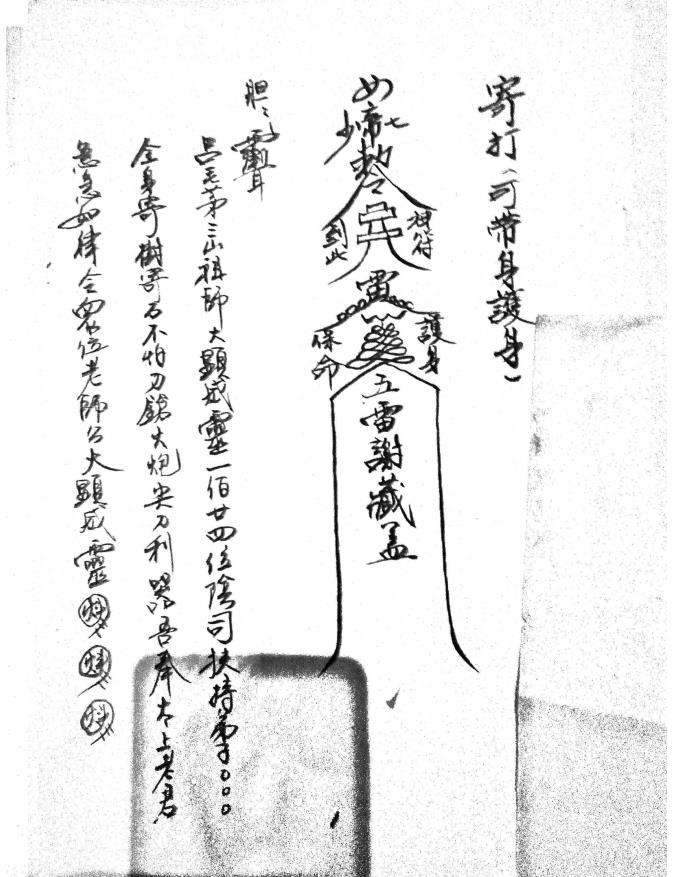 寄打(可帶身護身)
勅令
祖符
到此
雷
護身
保命
五雷謝藏盖
胆
呂毛茅三山祖師大顯威靈一佰廿四位陰司扶持弟子○○○
全身寄樹寄石不怕刀鎗大炮尖刀利器吾奉太上老君
急急如律令眾位老師公大顯威靈